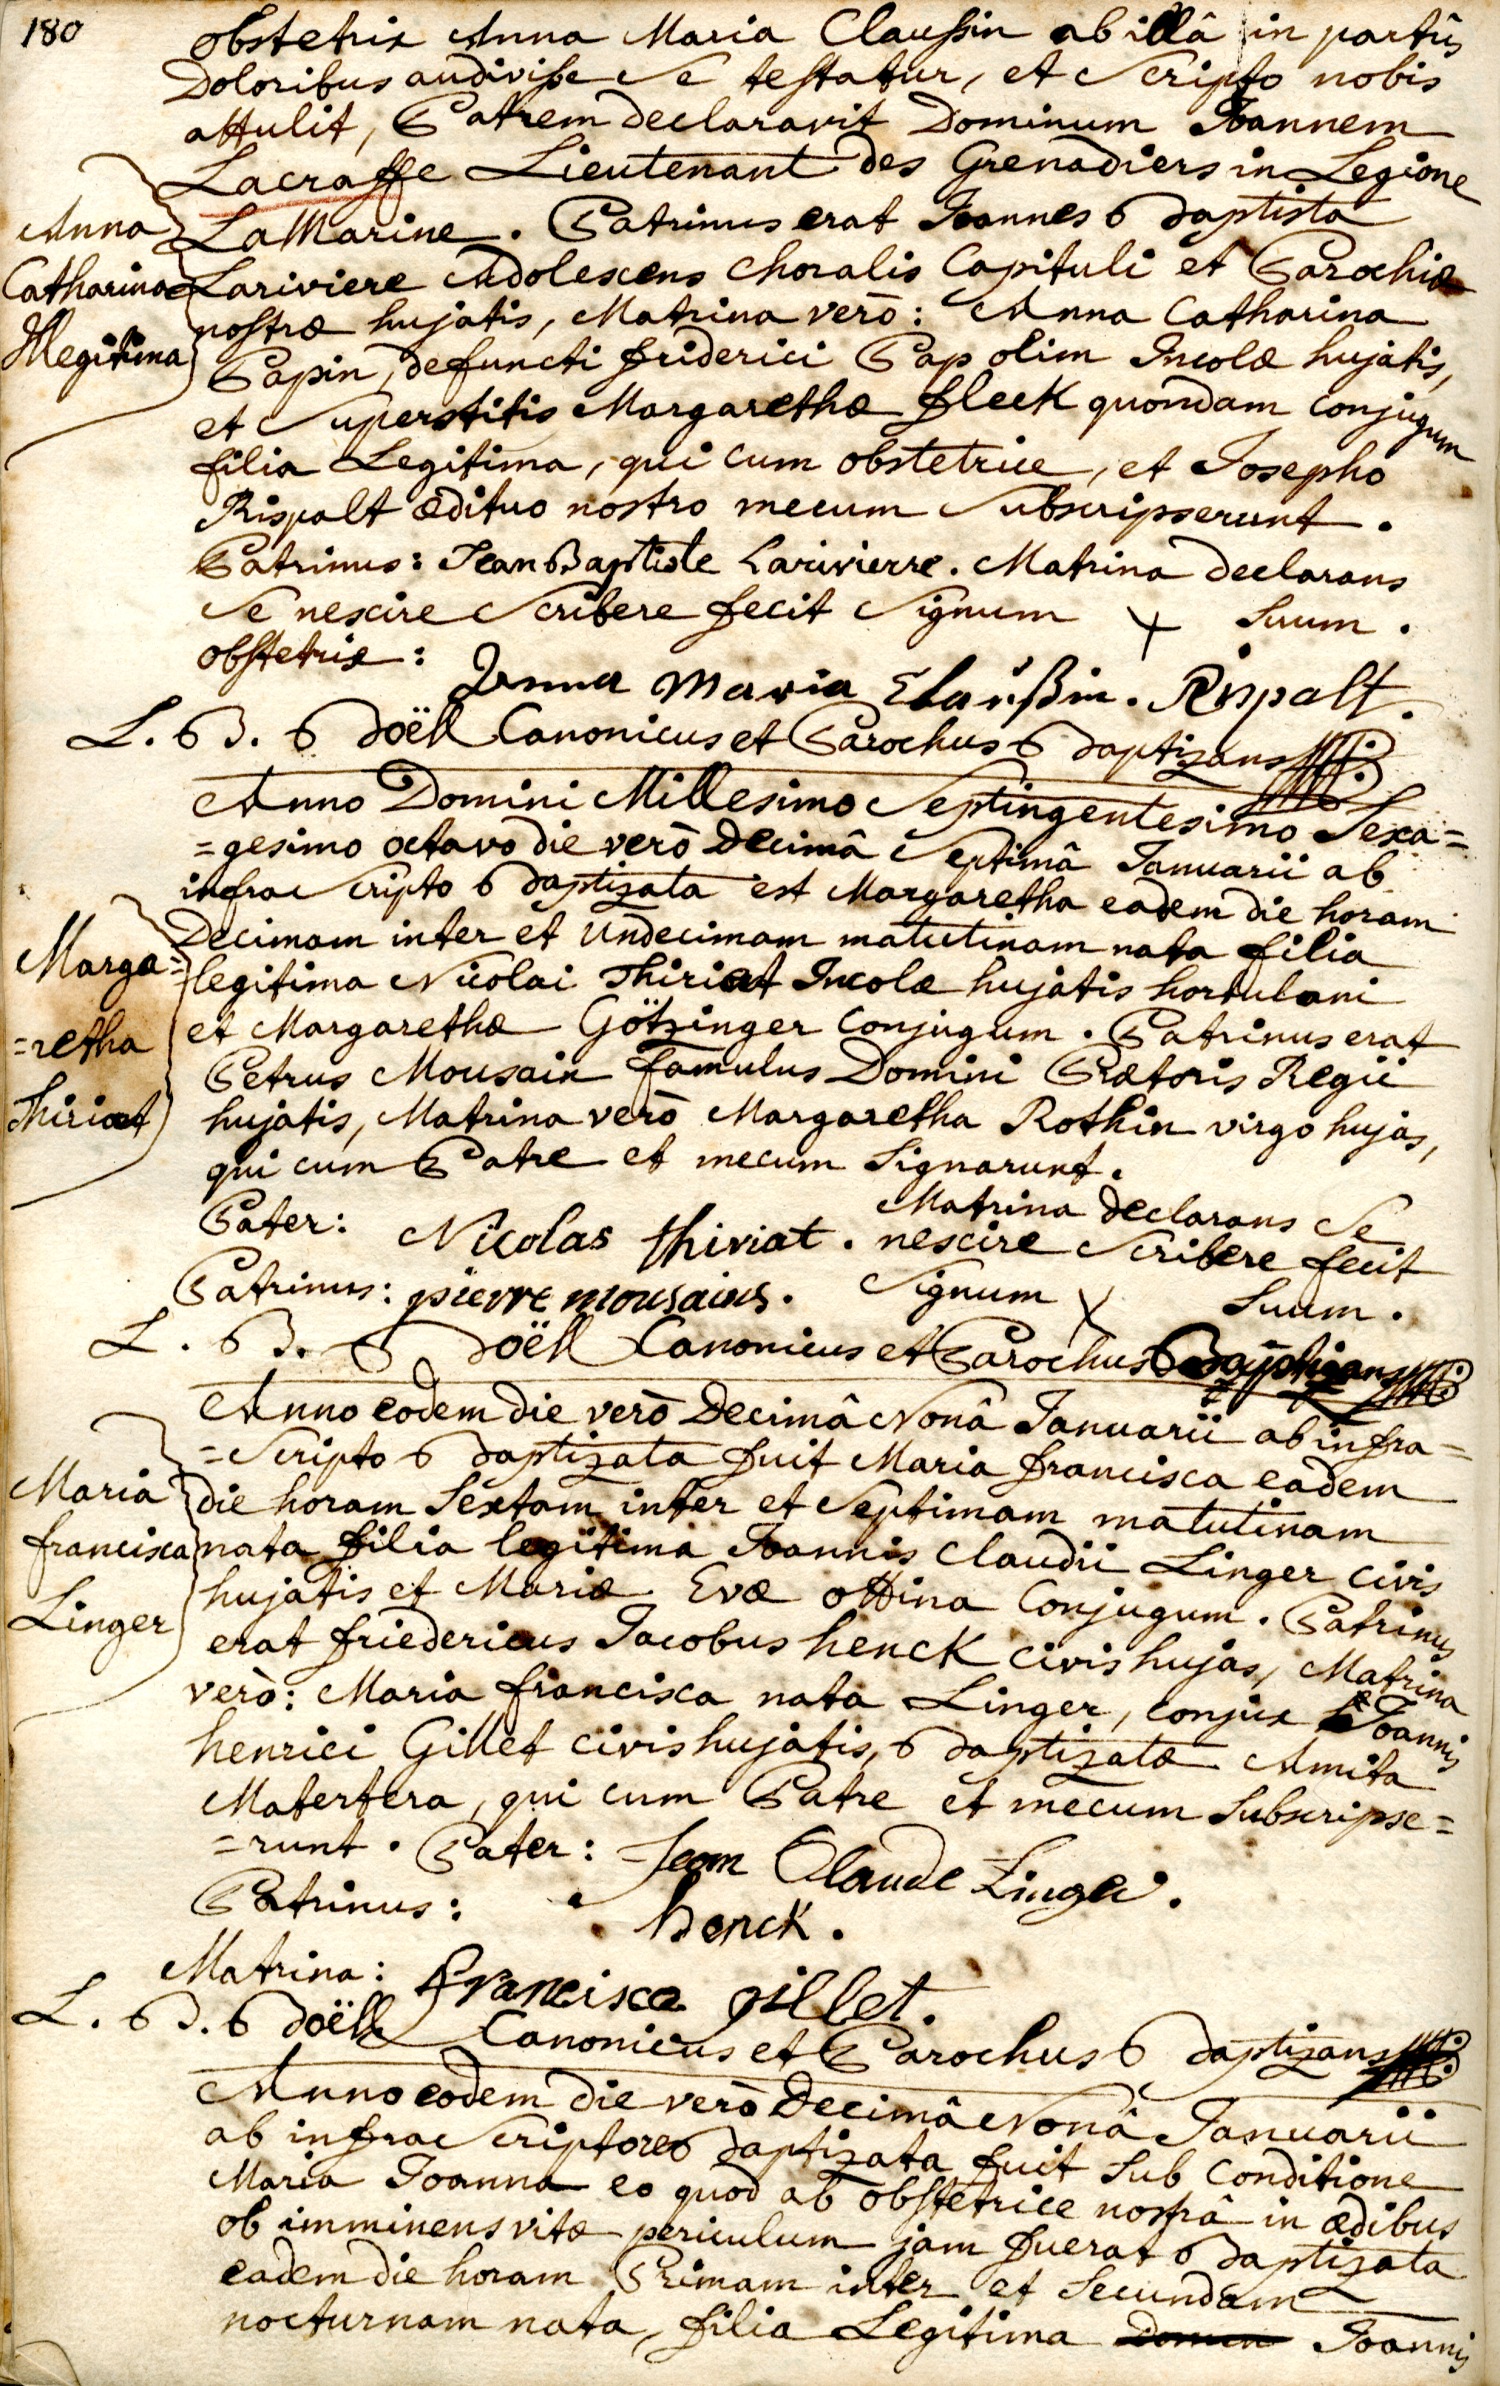 180
obstetrix Anna Maria Claussin ab illâ in partûs
Doloribus audivisse Se testatur, et Scripto nobis
attulit, Patrem declaravit Dominum Joannem
Lacraffe Lieutenant des Grenadiers in Legione
La Marine. Patrinus erat Joannes Baptista
Lariviere Adolescens Choralis Capituli et Parochiæ
nostræ hujatis, Matrina verò: Anna Catharina
Papin, defuncti friderici Pap olim Incolæ hujatis,
et Superstitis Margarethæ fleck quondam Conjugum
filia Legitima, qui cum obstetrice, et Josepho
Rispalt ædituo nostro mecum Subscripserunt.
Anna
Catharina
Illegitima
Patrinus: Jean Baptiste Larivierre. Matrina declarans
Se nescire Scribere fecit Signum + Suum.
obstetrix: Anna Maria Claußin. Rispalt.
L. B. Boëll Canonicus et Parochus Baptizans
Anno Domini Millesimo Septingentesimo Sexa=
=gesimo octavo die verò Decimâ Septimâ Januarii ab
infra Scripto Baptizata est Margaretha eadem die horam
Decimam inter et Undecimam matutinam nata filia
legitima Nicolai Thiriat Incolæ hujatis hortulani
et Margarethæ Götzinger Conjugum. Patrinus erat
Petrus Mousain famulus Domini Prætoris Regii
hujatis, Matrina verò Margaretha Rothin virgo hujas,
qui cum Patre et mecum Signarunt.
Marga=
=retha
Thiriat
Pater: Nicolas thiriat. Matrina declarans Se
nescire Scribere fecit
Patrinus: pierre mousains. Signum + Suum.
L. B. Boëll Canonicus et Parochus Baptizans
Anno eodem die verò Decimâ Nonâ Januarii ab infra=
=Scripto Baptizata fuit Maria francisca eadem
die horam Sextam inter et Septimam matutinam
nata filia legitima Joannis Claudii Linger civis
hujatis et Mariæ Evæ ottina Conjugum. Patrinus
erat friedericus Jacobus henck civis hujas, Matrina
verò: Maria francisca nata Linger, conjux Joannis
henrici Gillet civis hujatis, Baptizatæ Amita
Matertera, qui cum Patre et mecum Subscripse=
=runt. Pater: Jean Claude Linger.
Maria
francisca
Linger
Patrinus: henck.
Matrina: francisca gillet.
L. B. Boëll Canonicus et Parochus Baptizans
Anno eodem die verò Decimâ Nonâ Januarii
ab infra Scripto Baptizata fuit Sub Conditione
Maria Joanna eo quod ab obstetrice nostrâ in ædibus
ob imminens vitæ periculum jam fuerat Baptizata
eadem die horam Primam inter et Secundam
nocturnam nata, filia Legitima Joannis